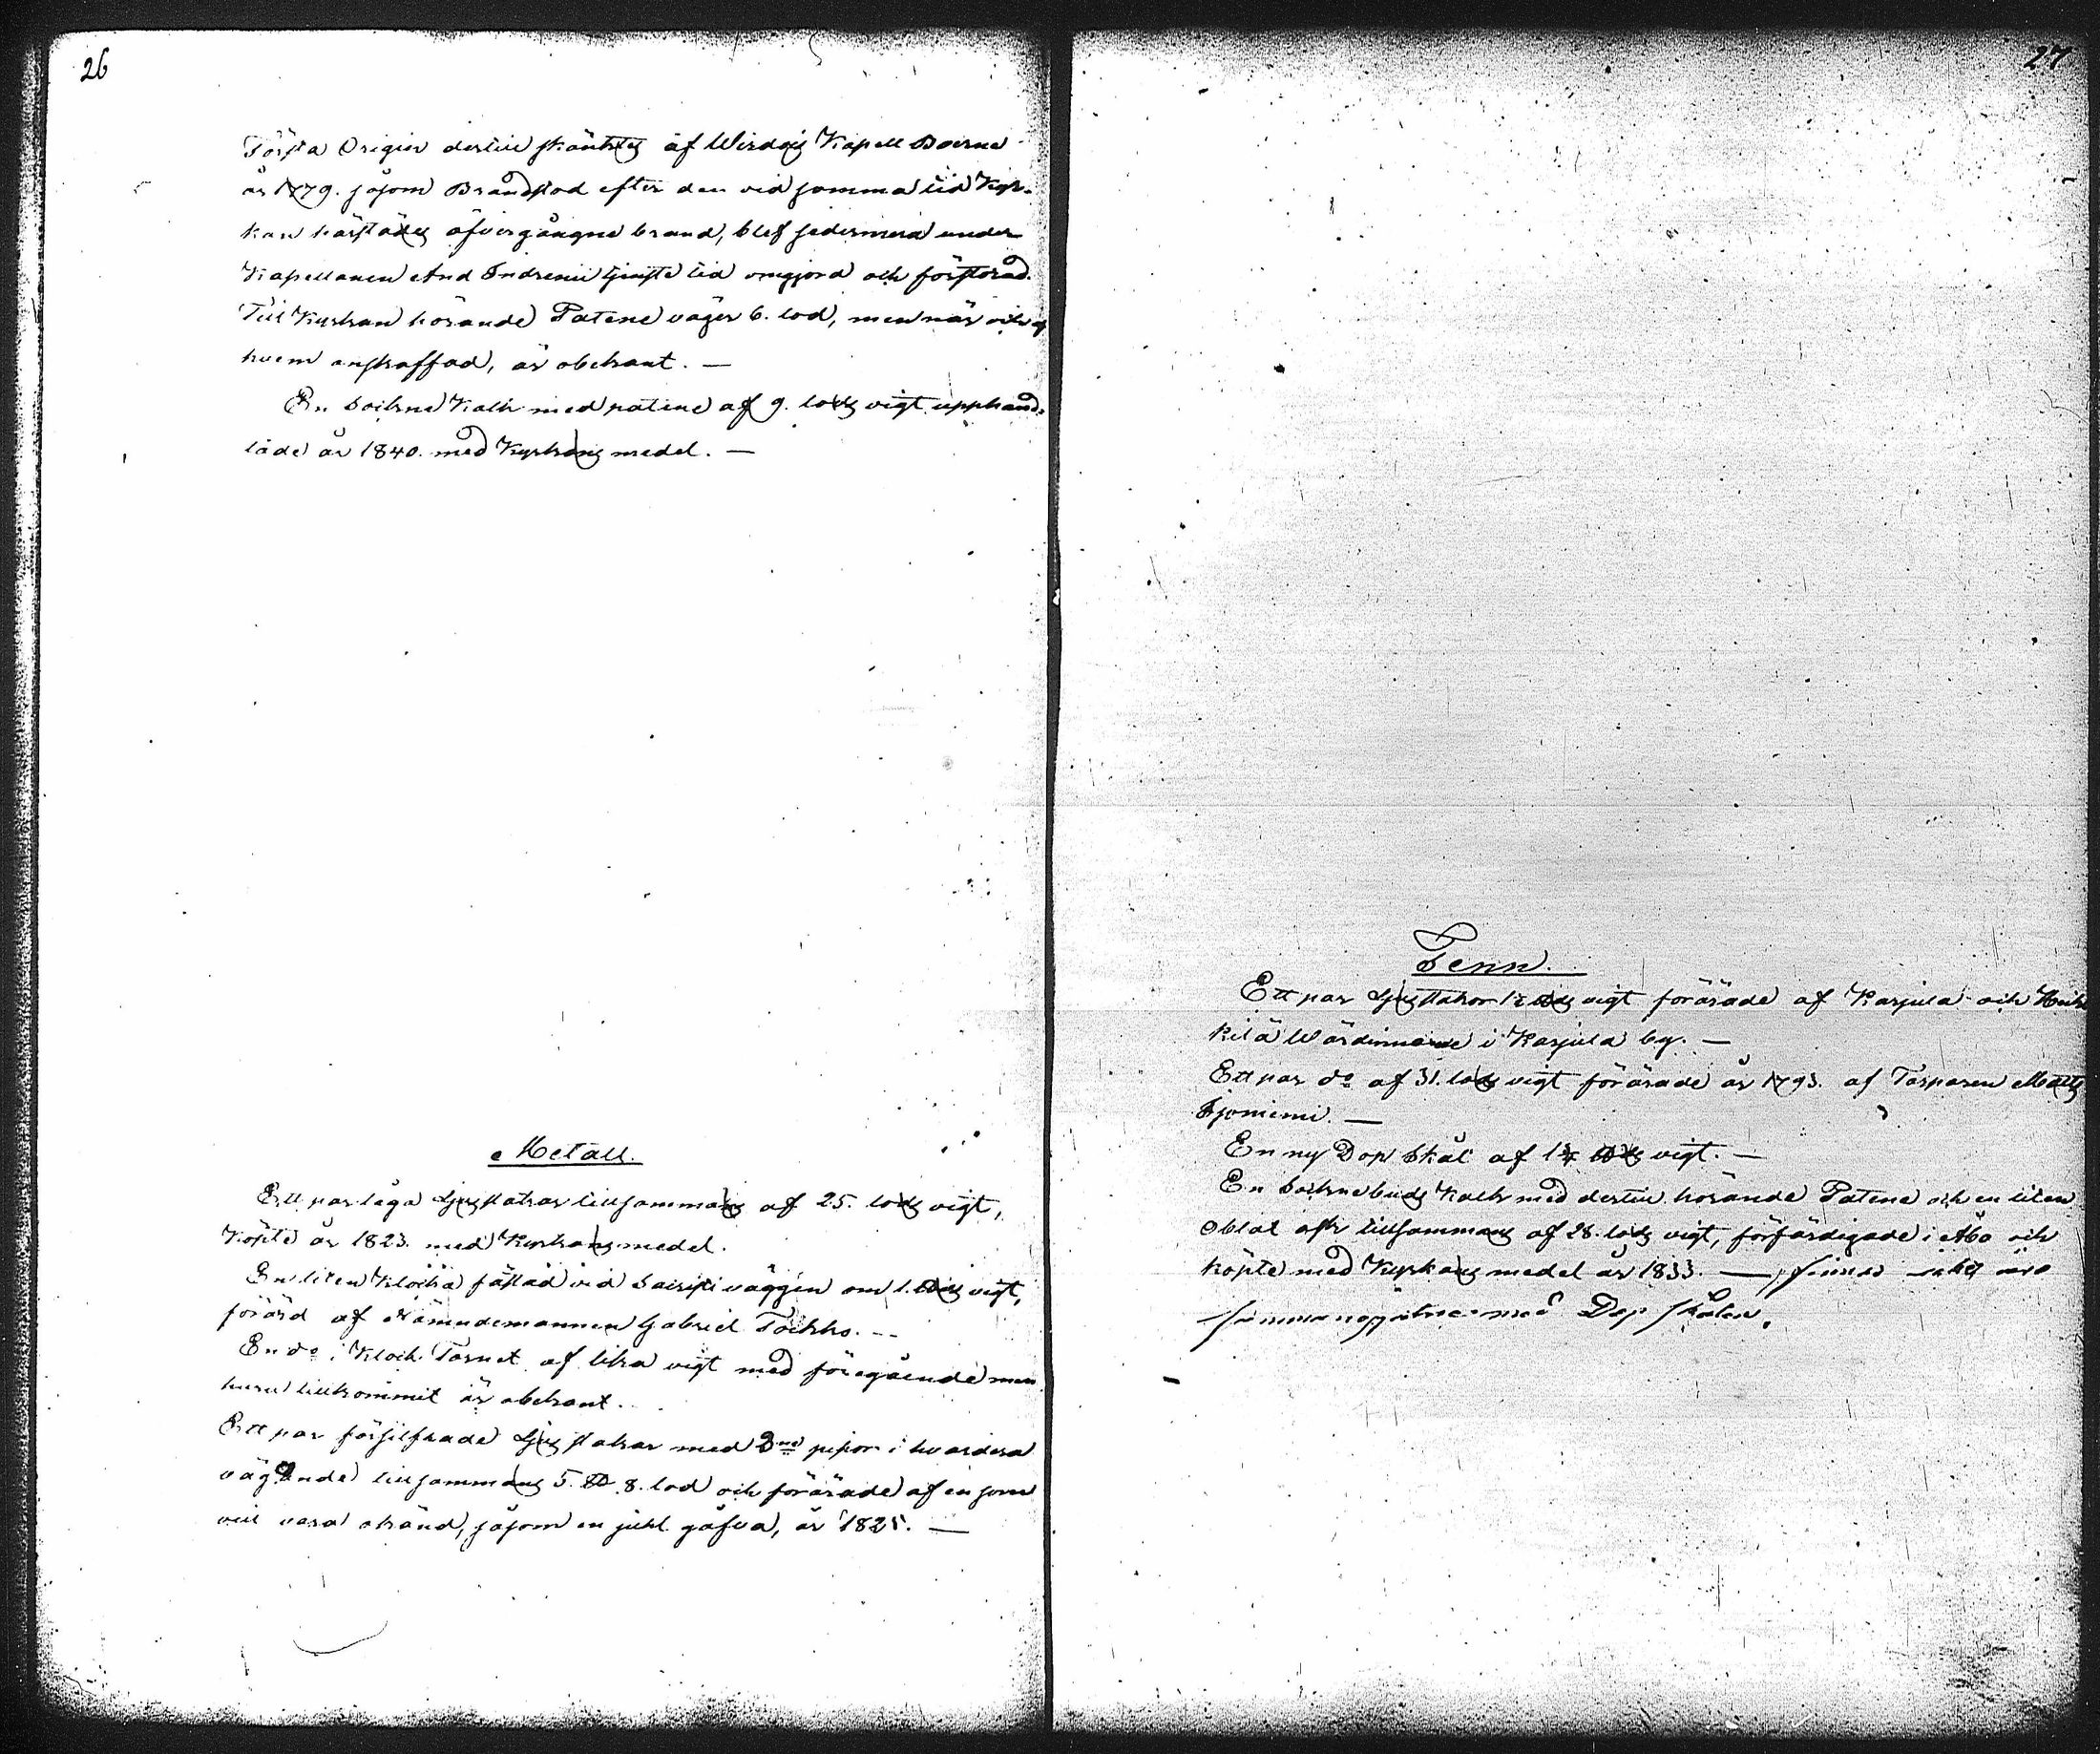 26
Första Origin dertill skänktes af Wirdois Kapell Boerne
år 1779. såsom Brandstod efter den vid samma tid Kyr-
kan härstädes öfvergångne brand, blef sedermera under
Kapellanen And Indrenii tjenste tid omgjord och förstorad.
Till Kyrkan hörande Patene väger 6. lod, men när och af
hvem anskaffad, är obekant. —
En Sockne Kalk med patene af 9. lods vigt upphand-
lade år 1840. med Kyrkans medel. —
Metall.
Ett par låga Ljusstakar tillsammans af 25. lods vigt,
Köpte år 1823. med Kyrkans medel.
En liten Klocka fästad vid Sacristi väggen om 1. ℔ds vigt,
förärd af Nämndemannen Gabriel Toikko. —
En do i Klock Tornet af lika vigt med föregående men
huru tillkommit är obekant.
Ett par försilfrade Ljusstakar med 2ne pipor i hvardera
vägande tillsammans 5. ℔ 8. lod och förärade af en som
vill vara okänd, såsom en jubl. gåfva, år 1825. —
27
Tenn.
Ett par Ljusstakar ℔ds vigt förärade af Karjula och
kilä Wärdinnorne i Karjula by. —
Ett par do af 31. lods vigt förärade år 1793. af Torparen Matts
Sjoniemi. —
En ny Dop Skål af 1¾ ℔ds vigt. —
En Sockne buds Kalk med dertill hörande Patene och en liten
Oblat ask tillsammans af 28. lods vigt, förfärdigade i Åbo och
köpte med Kyrkans medel år 1833. — finnes
med Dop skålen.